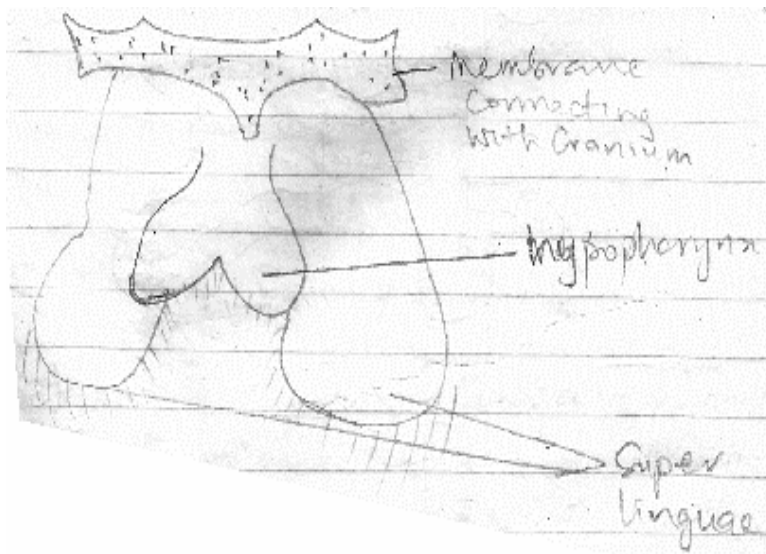 Membrane
Connecting
with Cranium
hypopharynx
Super
linguae